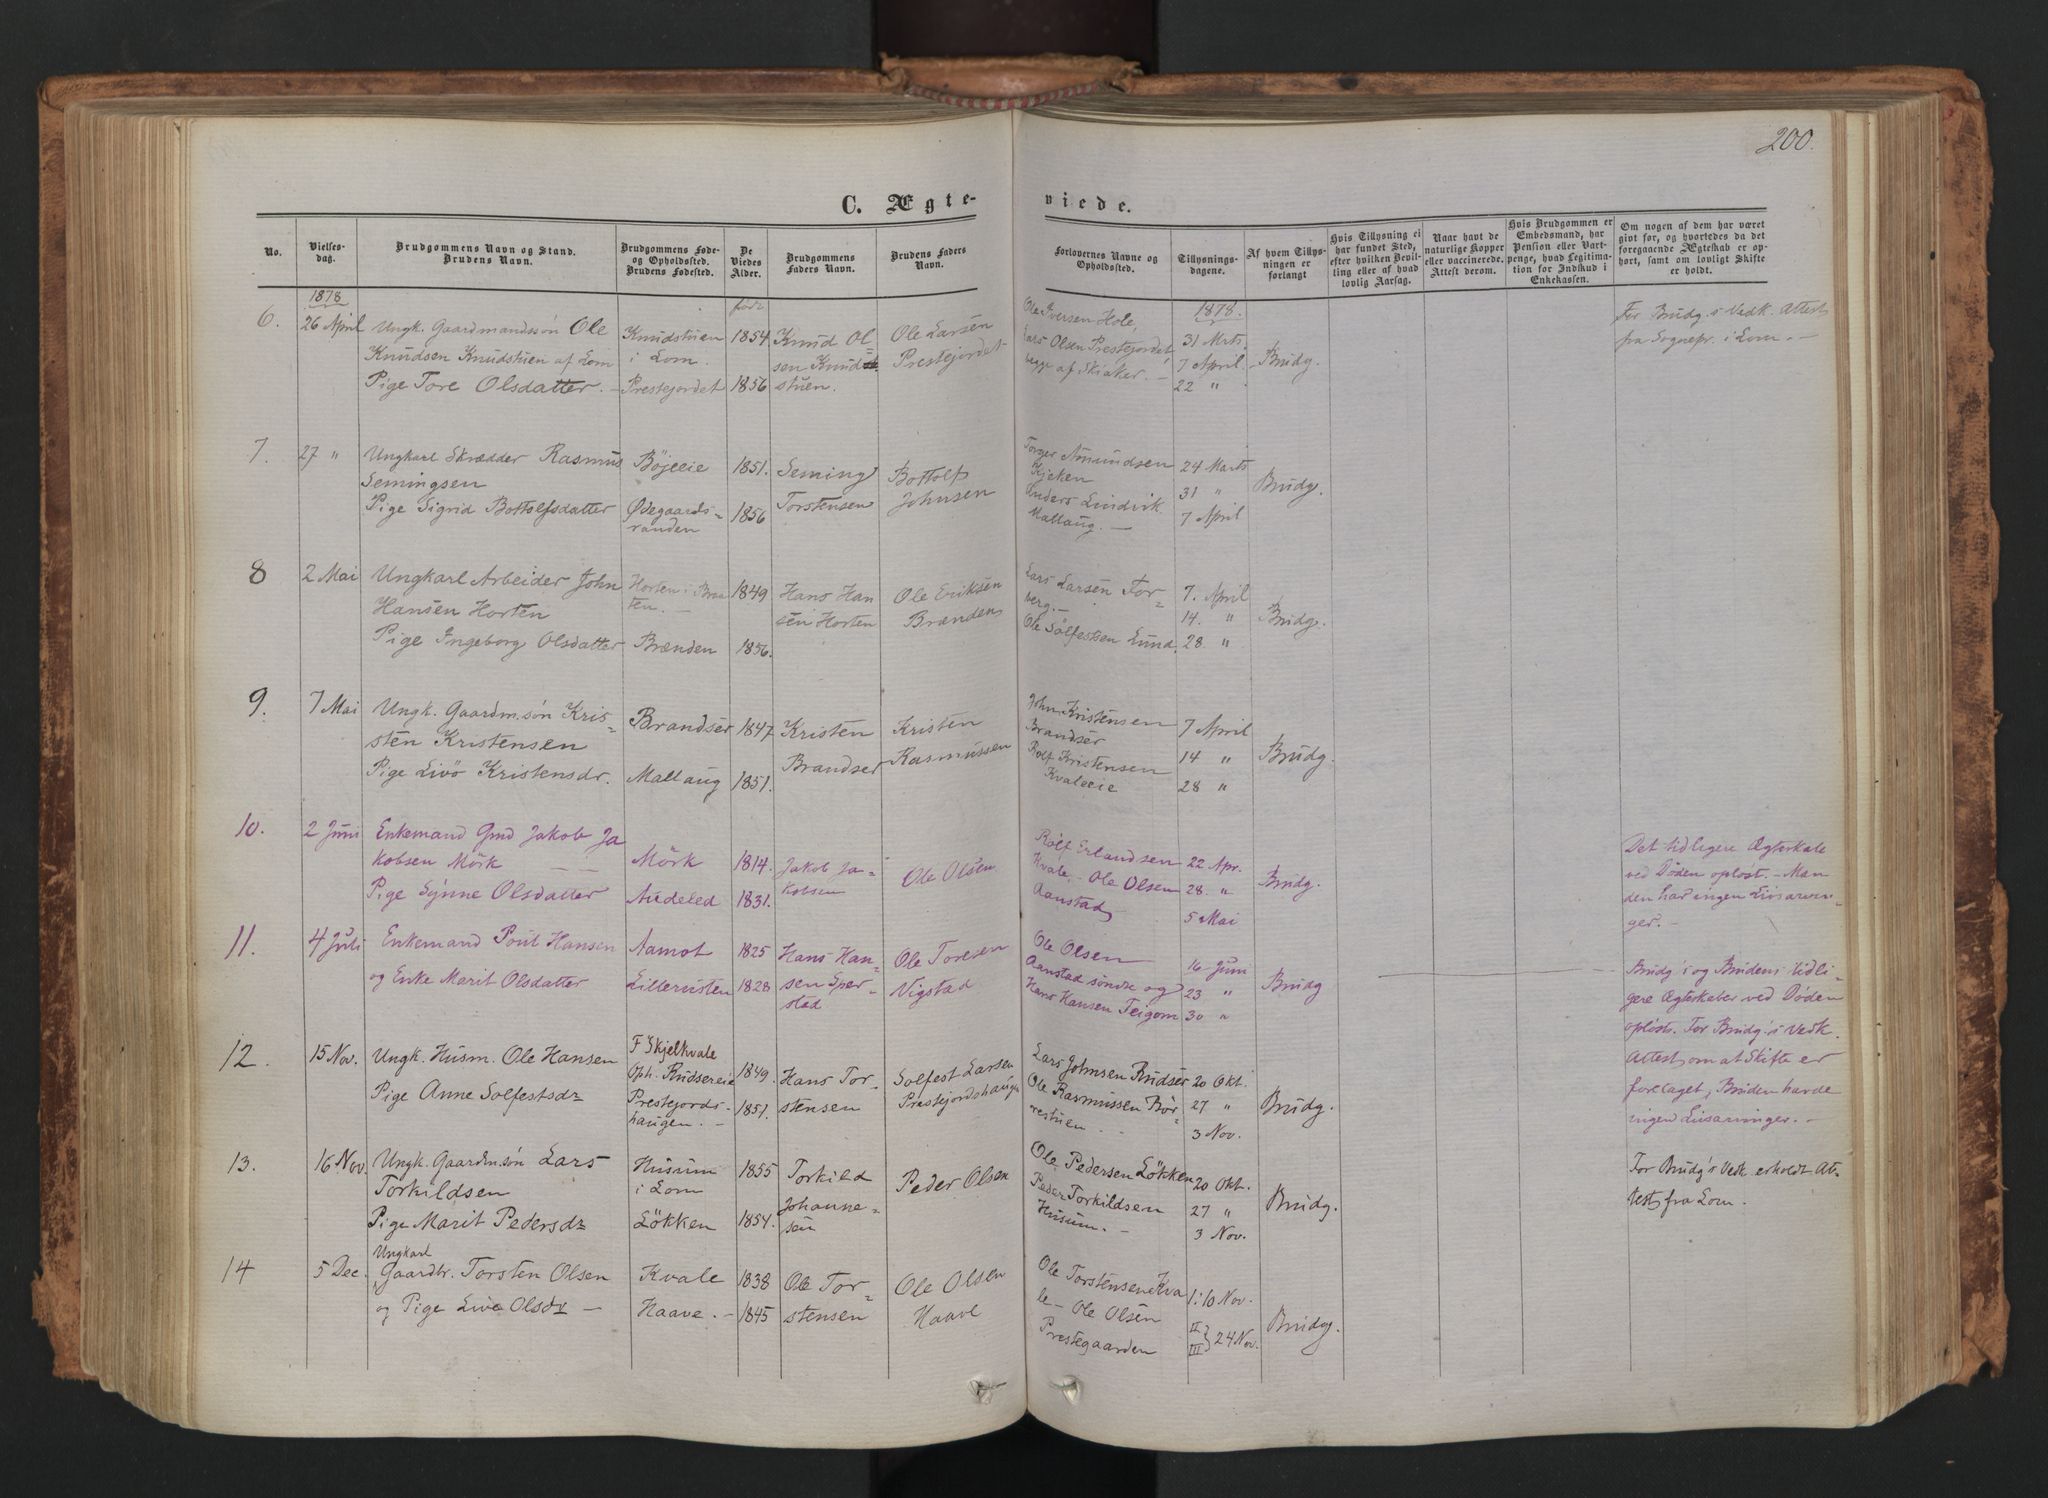 200.
C. Ægte-
viede.
No.
Vielses-
dag.
Brudgommens Navn og Stand.
Brudens Navn.
Brudgommens Føde-
og Opholdssted.
Brudens Fødested.
De
Viedes
Alder.
Brudgommens
Faders Navn.
Brudens Faders
Navn.
Forlovernes Navne og
Opholdssted.
Tillysnings-
dagene.
Af hvem Tillys-
ningen er
forlangt
Hvis Tillysning ei
har fundet Sted,
efter hvilken Bevil-
ling eller af hvad
lovlig Aarsag.
Naar havt de
naturlige Kopper
eller vaccinerede.
Attest derom.
Hvis Brudgommen er
Embedsmand, har
Pension eller Vart-
penge, hvad Legitima-
tion for Indskud i
Enkekassen.
Om nogen af dem har været
givt før, og hvorledes da det
foregaaende Ægteskab er op-
hørt, samt om lovligt Skifte
er holdt.
1878
6.
26 April
Ungk. Gaardmandssøn Ole
Knudsen Knudstuen af Lom
Pige Tore Olsdatter. –
Knudstuen
i Lom.
Prestejordet
født
1854
1856
Knud Ol-
sen Knud-
stuen.
Ole Larsen
Prestejordet
Ole Iversen Hole,
Lars Olsen Prestejordet,
begge af Skiaker. –
1878.
31 Mrts.
7 April
22 "
Brudg.
For Brudg.s Vedk. Attest
fra Sognepr. i Lom. –
7.
27 "
Ungkarl Skrædder Rasmus
Semingsen
Pige Sigrid Bottolfsdatter
Böjeeie
Ødegaards-
randen
1851.
1856
Seming
Torstensen
Bottolf
Johnsen
Torger Amundsen
Kjeken
Anders Lindvik
Mallaug. –
24 Marts
31 "
7 April
Brudg.
8
2 Mai
Ungkarl Arbeider John
Hansen Horten
Pige Ingeborg Olsdatter
Horten i Braa-
ten. –
Brænden
1849
1856.
Hans Han
sen Horten
Ole Eriksen
Brænden
Lars Larsen For-
berg. –
Ole Solfestsen Lund.
7. April
14. "
28 "
Brudg.
9.
7 Mai
Ungk. Gaardm.søn Kris-
sten Kristensen
Pige Livö Kristensdr.
Brandser
Mallaug
1847
1851.
Kristen
Brandser
Kristen
Rasmussen
John Kristensen
Brandser
Rolf Kristensen
Kvaleeie
7 April
14 "
28 "
Brudg.
10.
2 Juni
Enkemand Gmd Jakob Ja
kobsen Mörk — —
Pige Synne Olsdatter
Mörk
Audeled
1814.
1831.
Jakob Ja-
kobsen
Ole Olsen
Rolf Erlandsen
Kvale. – Ole Olsen
Aanstad
22 Apr.
28. "
5 Mai
Brudg.
Det tidligere Ægteskab
ved Døden oplöst. – Man
den har ingen Livsarvin-
ger. –
11.
4 Juli
Enkemand Poul Hansen
og Enke Marit Olsdatter
Aamot
Lillerusten
1825
1828
Hans Han-
sen Sper-
stad
Ole Toresen
Vigstad
Ole Olsen
Aanstad söndre og
Hans Hansen Teigom
16 Juni
23 "
30 "
Brudg
Brudg's og Brudens tidli-
gere Ægteskaber ved Døden
oplöst. For Brudg.'s Vedk.
Attest om at Skifte er
foretaget, Bruden havde
ingen Livsarvinger. –
12.
15 Nov.
Ungk. Husm. Ole Hansen
Pige Anne Solfestsdr
F Skjelkvale
Oph. Rudsereie
Prestejords-
haugen. –
1849.
1851.
Hans Tor-
stensen
Solfest Larsen
Prestejordshaugen
Lars Johnsen Rudser
Ole Rasmussen Bör-
restuen. –
20 Okt.
27 "
3 Nov.
Brudg.
13.
16 Nov.
Ungk. Gaardm.søn Lars
Torkildsen
Pige Marit Pedersdr
Husum
i Lom
Lökken
1855
1854.
Torkild
Johanne-
sen
Peder Olsen
Ole Pedersen Lökken
Peder Torkildsen
Husum. –
20 Okt.
27 "
3 Nov.
Brudg.
For Brudg's Vedk. erholdt At-
test fra Lom.
14
5 Dec.
Ungkarl
Gaardbr. Torsten Olsen
og Pige Live Olsdr —
Kvale
Haave. –
1838
1845
Ole Tor-
stensen
Ole Olsen
Haave
Ole Torstensen Kva
le – Ole Olsen
Prestegaarden
I: 10 Nov.
II
III } 24 Nov.
Brudg.